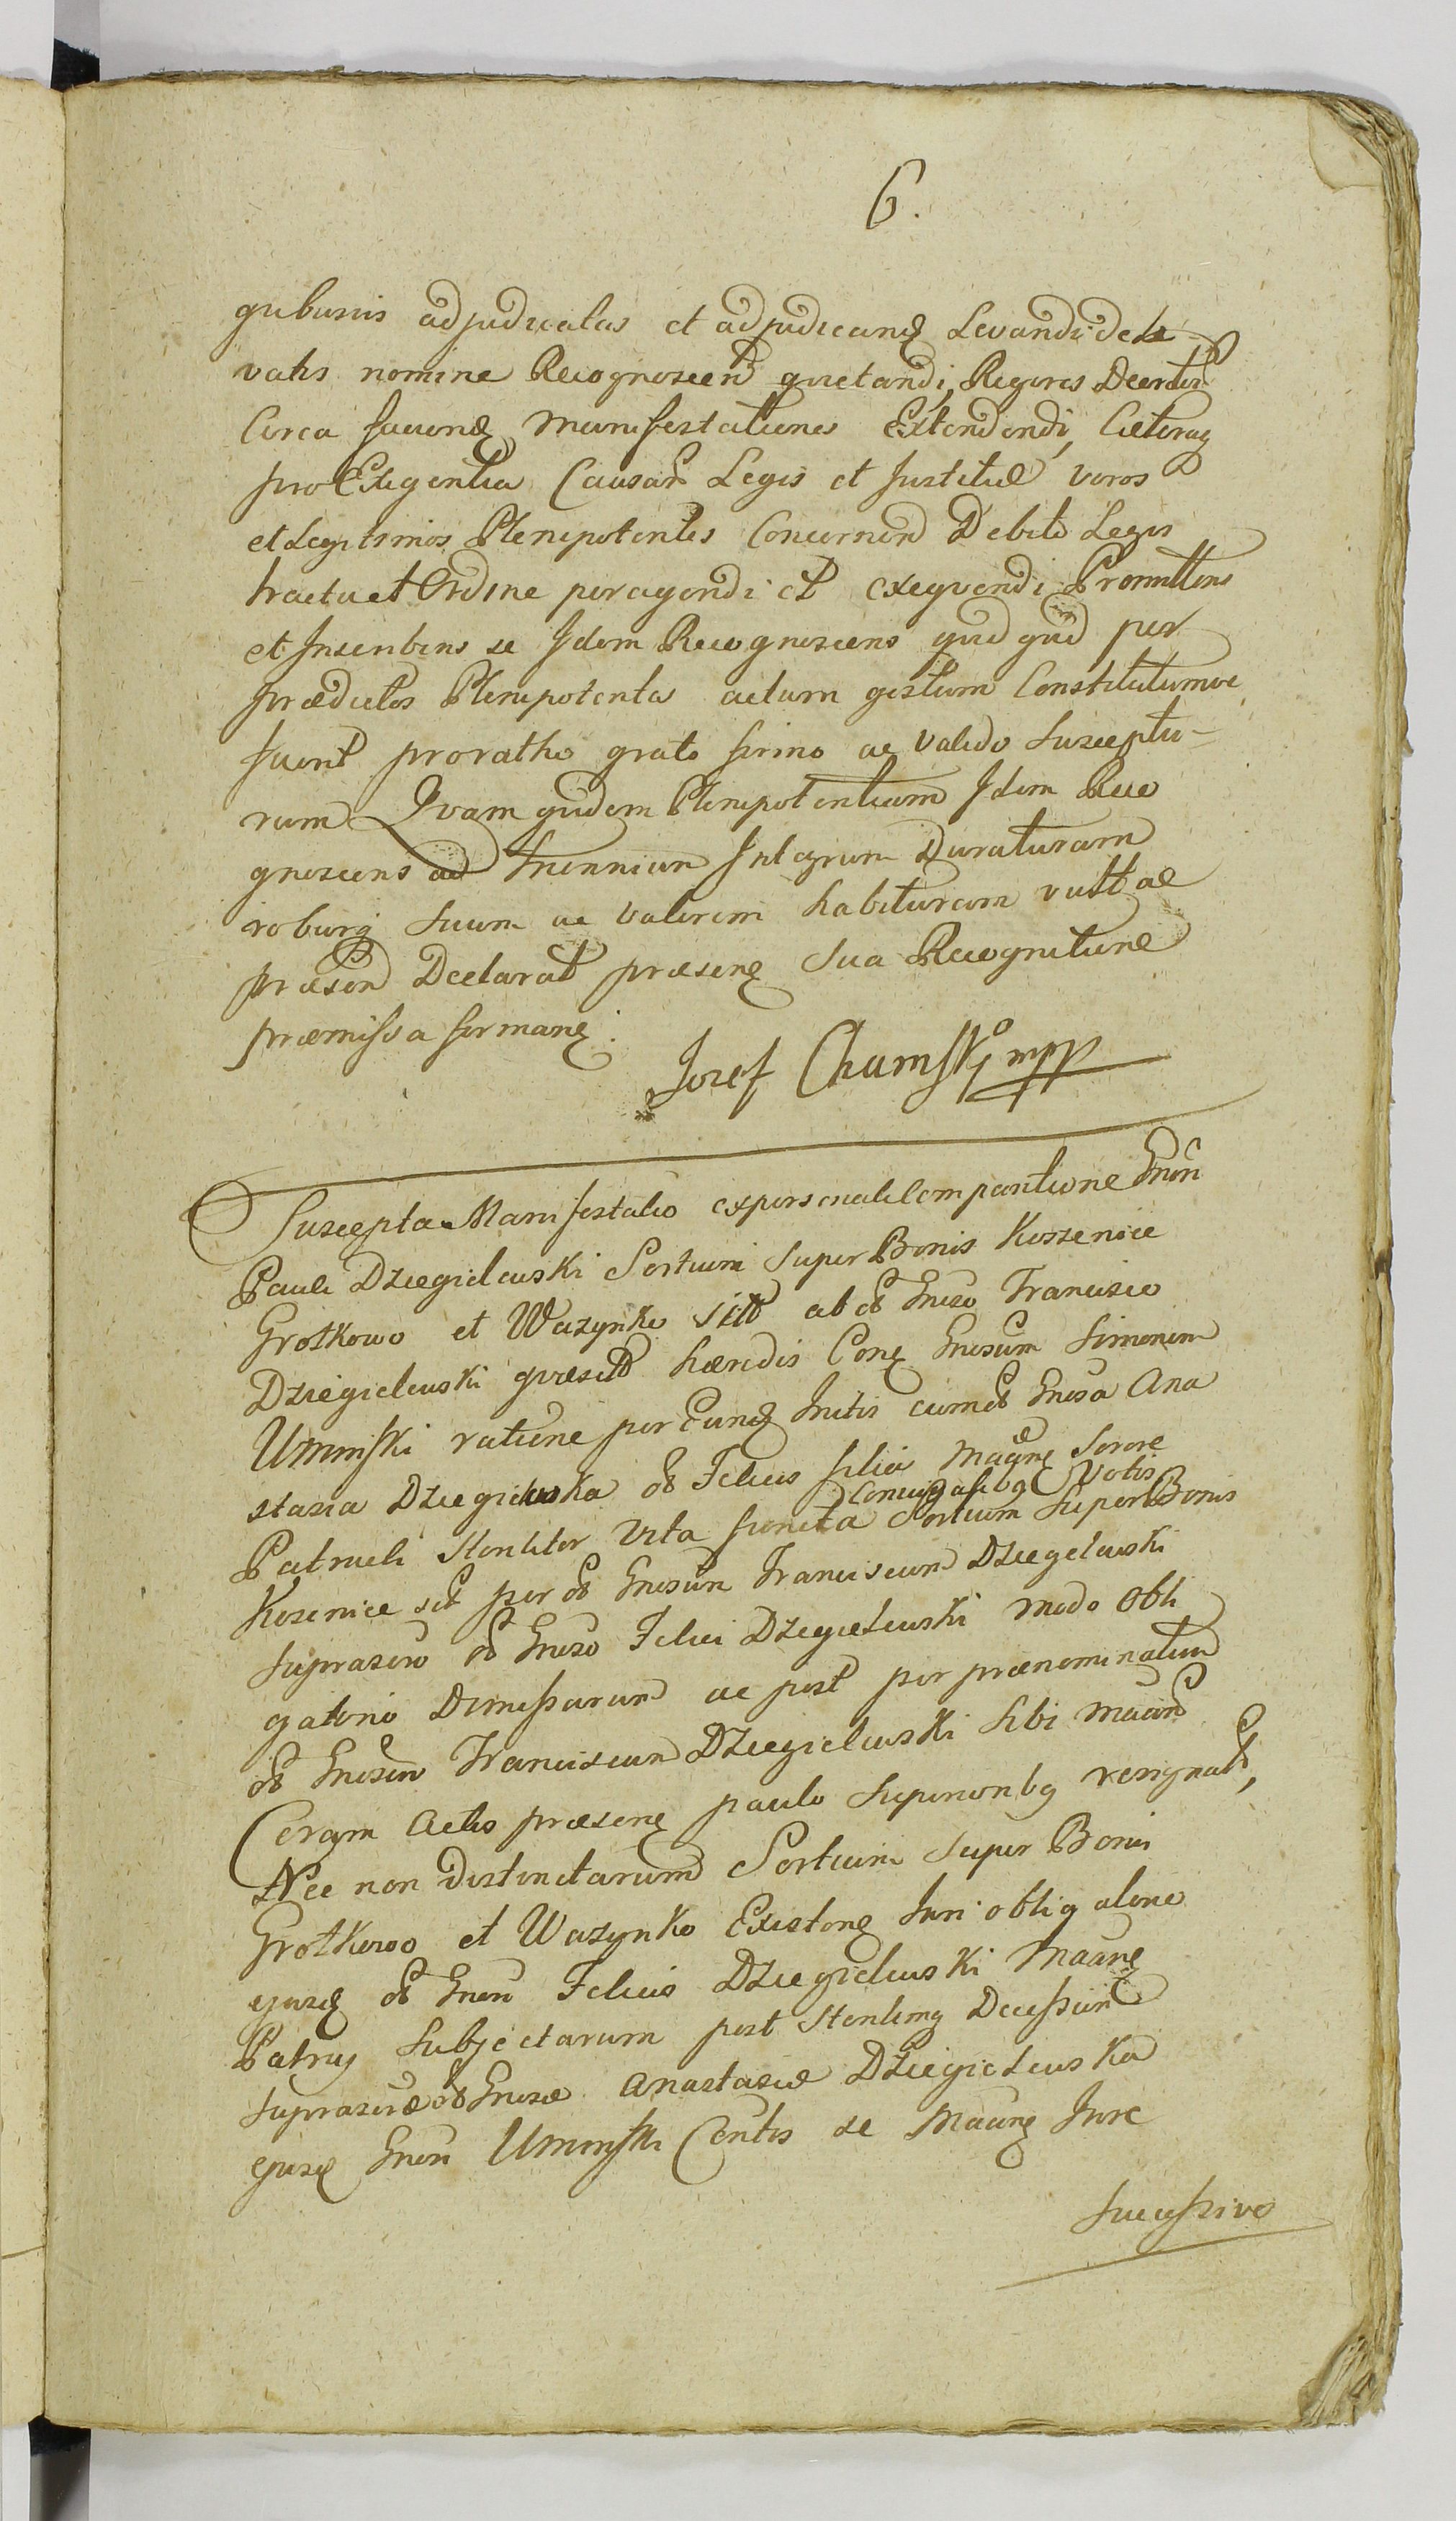 6.
gubusvis adjudicatas et adjudicand Levandi de le
vatis nomine Recognoscend quietandi, Rigores Decretor
Circa faciend Manifestationes Extendendi, Caeteraq
pro Exigentia Causar Legis et Justitiae veros
et Legitimos Plenipotentes Concernen Debito Legis
tractu et Ordine peragendi et exequendi Promittens
et Inscribens se Idem Recognoscens quid quid per
praedictos Plenipotentes actum gestum Constitutumve
fuerit pro ratho grato firmo ac valido Susceptu-
rum Qvam quidem Plenipotentiam Idem Reco
gnoscens ad Triennium Integrum Duraturam
roburq Suum ac valorem habituram vult ac
praesen Declarat praesen Sua Recognitione
praemissa forman.
Jozef Chamski mpp
Suscepta Manifestatio ex personali Comparitione Gnosi
Pauli Dziegielewski Sortium Super Bonis Koszenice
Grotkowo et Wazynko sitt ab ol Gnoso Francisco
Dziegielewski quaesitt haeredis Con Gnosum Simonem
Uminski ratione per Eund Initis cum ol Gnosa Ana
stasia Dziegielewska ol Felicis filia Maan Sorore
Conjugalibq Votis
Patrueli Steriliter Vita functa Sortium Super Bonis
Kozenice sit per ol Gnosum Franciscum Dziegelewski
Suprascro ol Gnoso Felici Dziegielewski modo Obli
gatorio Dimissarum ac post per praenominatum
ol Gnosum Franciscum Dziegielewski Sibi Maan
Coram Actis praesen paulo Superioribq resignatt,
Nec non Distinctarum Sortium Super Bonis
Grotkowo et Wazynko Existen Juri obligatorio
ejusd ol Gnosi Felicis Dziegielewski Maan
Patruj Subjectarum post Sterilemq Decessum
Suprascrae ol Gnosae Anastasiae Dziegielewska
ejusd Gnosi Uminski Contis se Maan Jure
Successivo